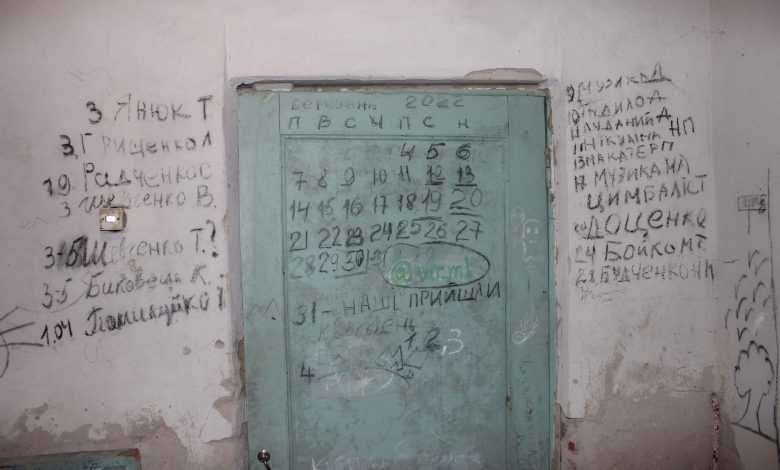 3. ЯНЮК Т
3. ГРИЩЕНКО Л
19. РАДЧЕНКО С
3 ШЕВЧЕНКО В.
3-5 ШЕВЧЕНКО Т.?
3-5 БИКОВЕЦЬ К.
1.04
БЕРЕЗЕНЬ 2022
П В С Ч П С Н
4 5 6
7 8 9 10 11 12 13
14 15 16 17 18 19 20
21 22 23 24 25 26 27
28 29 30 31
31 - НАШІ ПРИЙШЛИ
КВІТЕНЬ
1 2 3
4
9 МУЗИКА Д
11 ЛУДАНИЙ Д
12 НІКУЛІНА НП
13 НАКАТЕР П
МУЗИКА НЛ
ЦИМБАЛІСТ
ДОЩЕНКО
24 БОЙКО МТ
28 БУДЧЕНКО ЧИ